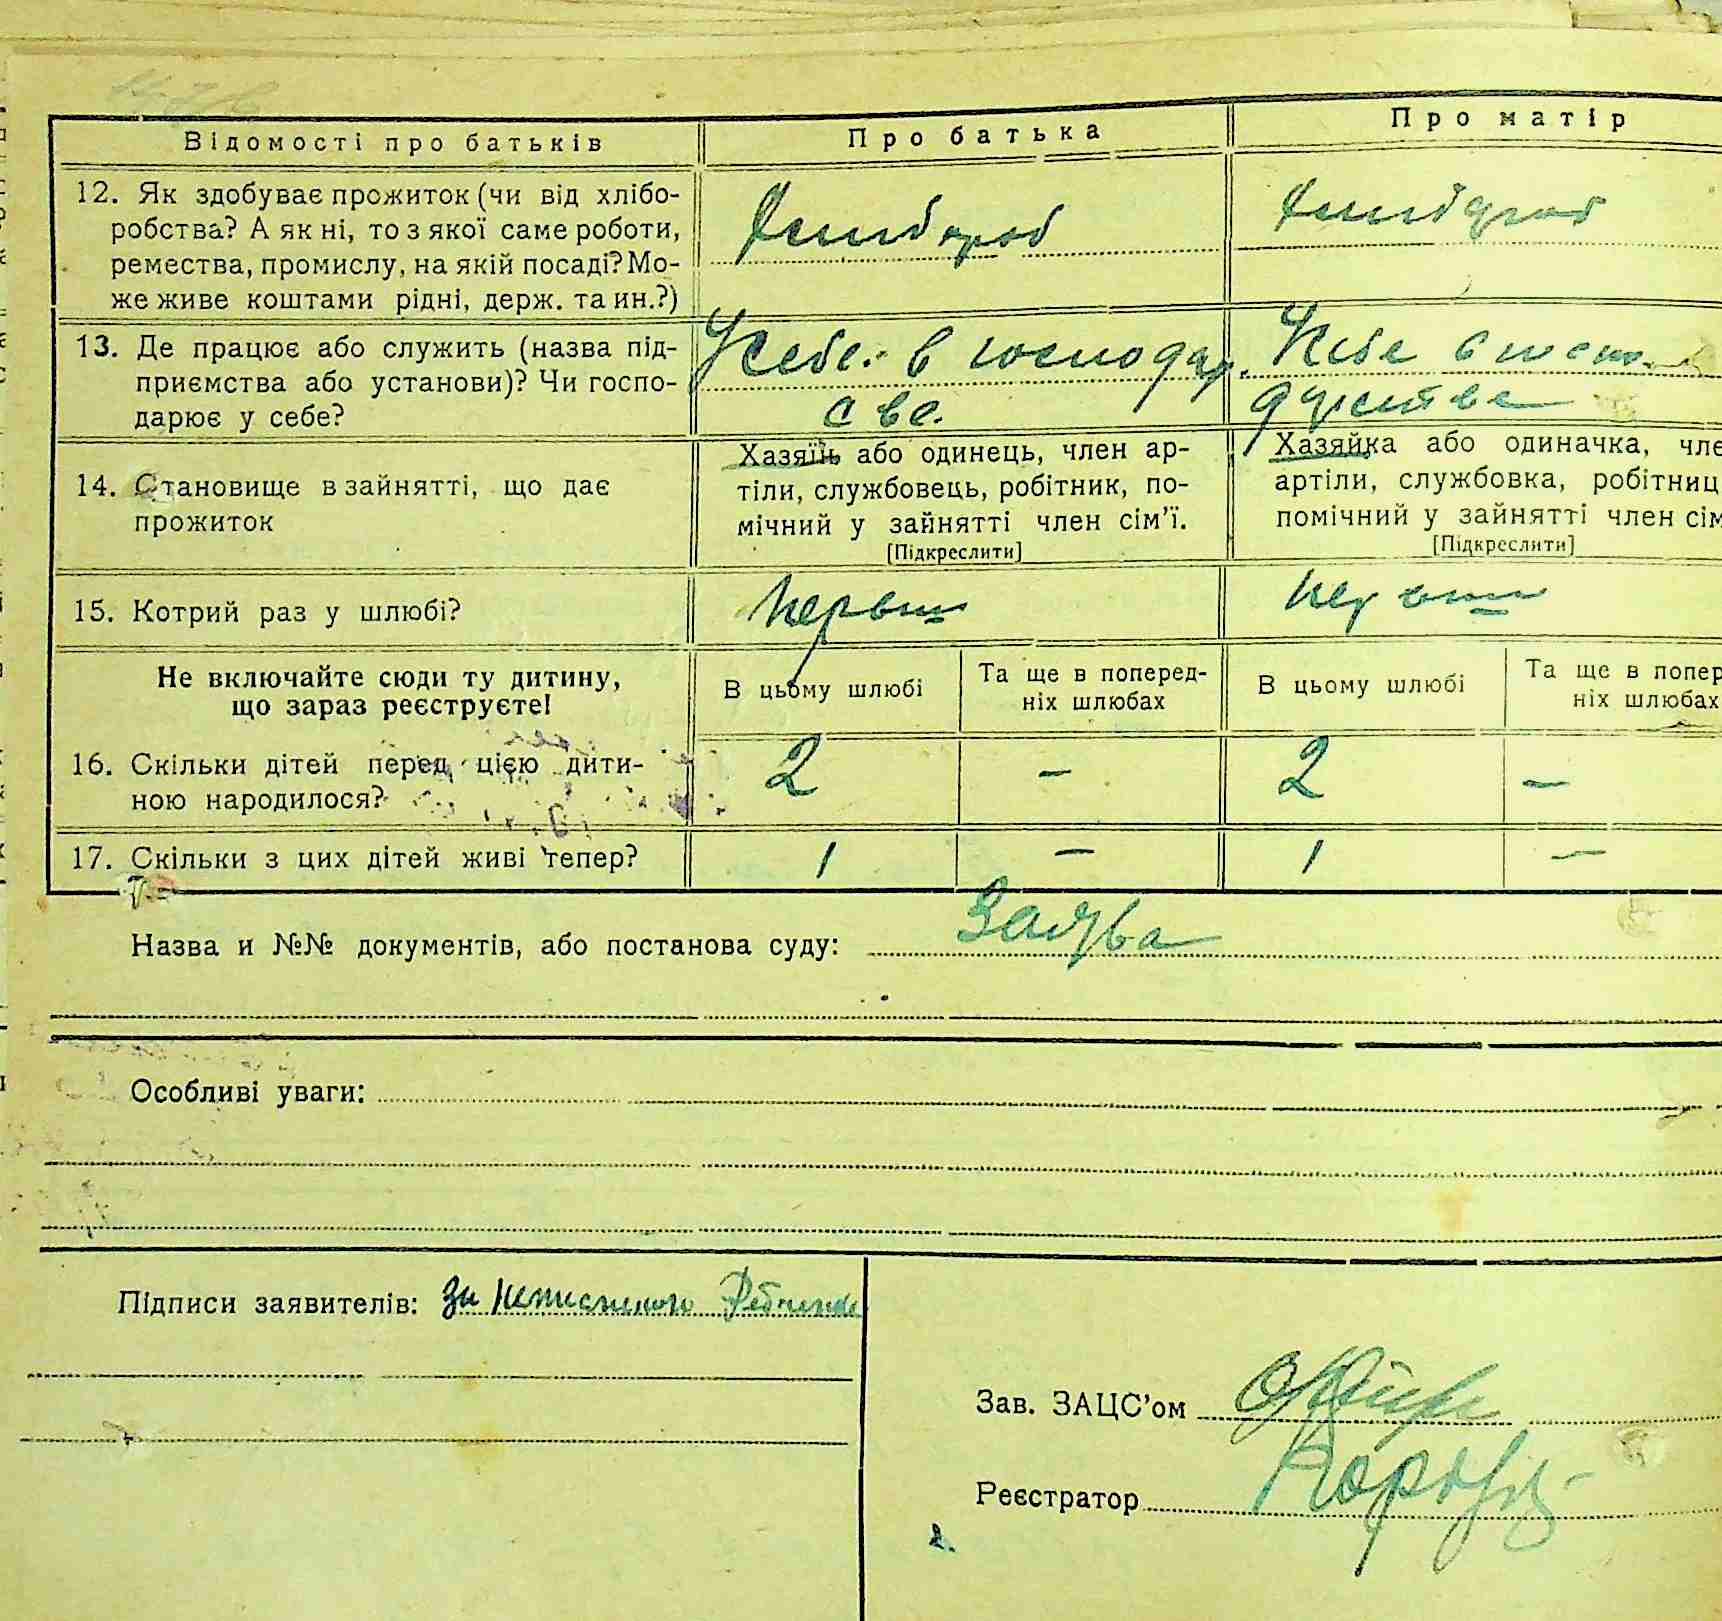 Відомості про батьків
Про батька
Про матір
12. Як здобуває прожиток (чи від хлібо-
робства? А як ні, то з якої саме роботи,
ремества, промислу, на якій посаді? Мо-
же живе коштами рідні, держ. та ин.?)
13. Де працює або служить (назва під-
приємства або установи)? Чи госпо-
дарює у себе?
У себе в господар.
стве.
У себе в госпо
дарстве
14. Становище в зайнятті, що дає
прожиток
Хазяїн або одинець, член ар-
тіли, службовець, робітник, по-
мічний у зайнятті член сім'ї.
[Підкреслити]
Хазяйка або одиначка, чле
артіли, службовка, робітниц
помічний у зайнятті член сім
[Підкреслити]
15. Котрий раз у шлюбі?
Первый
Первый
Не включайте сюди ту дитину,
що зараз реєструєте!
В цьому шлюбі
Та ще в поперед-
ніх шлюбах
В цьому шлюбі
Та ще в попер
ніх шлюбах
16. Скільки дітей перед цією дити-
ною народилося?
2
–
2
–
17. Скільки з цих дітей живі тепер?
1
–
1
–
Назва и №№ документів, або постанова суду: Заява
Особливі уваги:
Підписи заявителів: За неписьмого
Зав. ЗАЦС'ом
Реєстратор